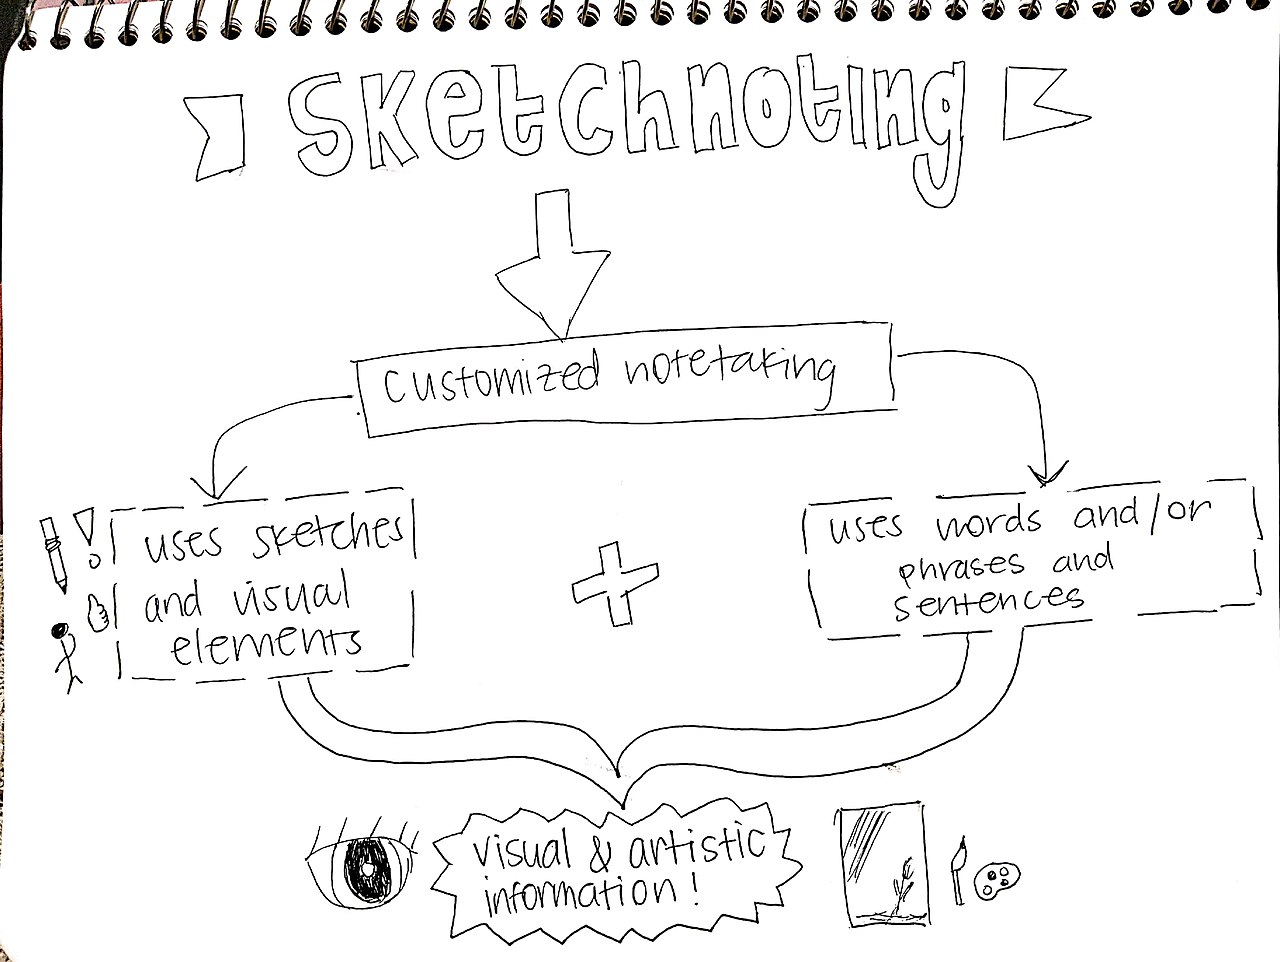 Sketchnoting
customized notetaking
uses sketches
and visual
elements
uses words and/or
phrases and
sentences
visual & artistic
information!